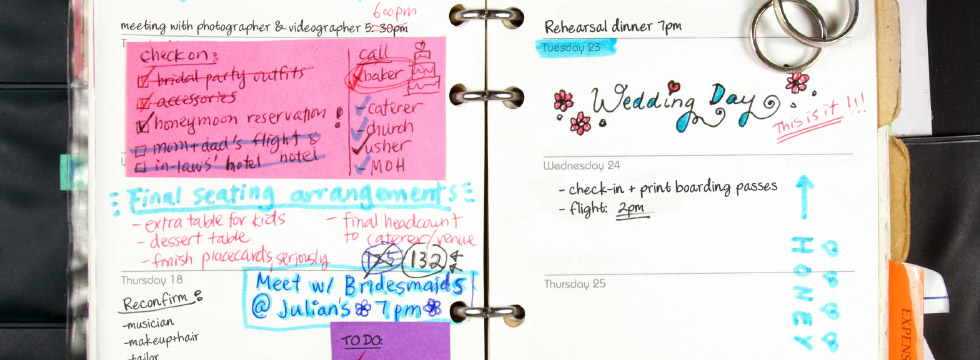 600pm
meeting with photographer & videographer 5:30pm
check on:
bridal party outfits
accessories
honeymoon reservation!
mom+dad's flight &
in-laws' hotel hotel
call
baker
caterer
church
usher
MOH
Final seating arrangements
- extra table for kids
- dessert table
- finish placecards, seriously
- final headcount
to caterer/venue
125 132
Thursday 18
Reconfirm:
-musician
-makeup+hair
-tailor
Meet w/ Bridesmaids
@ Julian's 7pm
TO DO:
Rehearsal dinner 7pm
Tuesday 23
Wedding Day
This is it!!!
Wednesday 24
- check-in + print boarding passes
- flight: 2pm
HONEY
Thursday 25
EXPEN